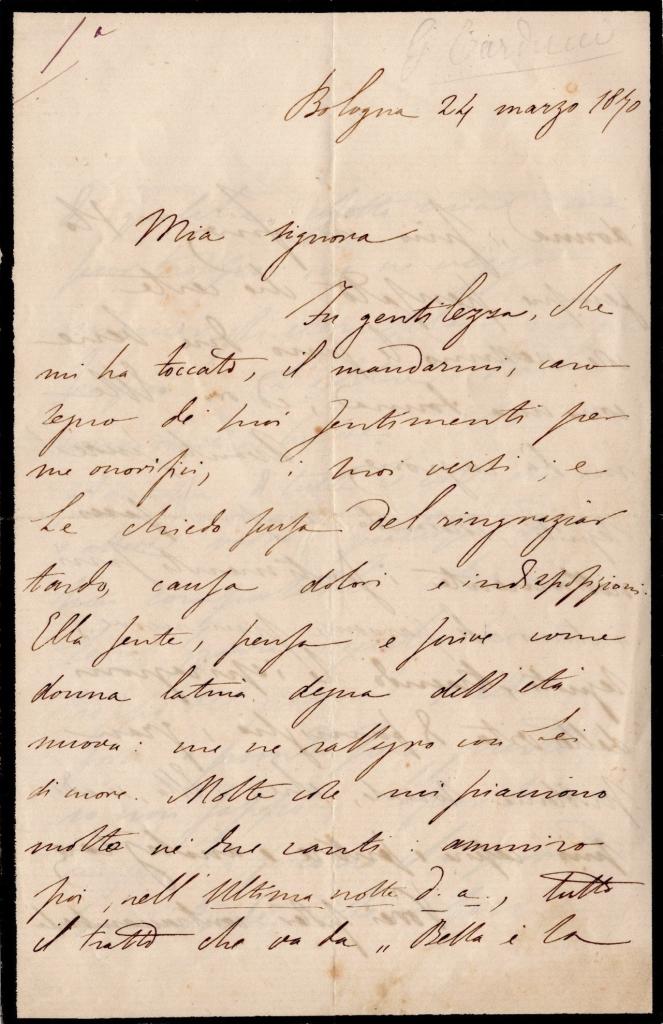 1ª
G. Carducci
Bologna 24 marzo 1870
Mia signora
Fu gentilezza, che
mi ha toccato, il mandarmi, caro
segno de' suoi sentimenti per
me onorifici, i suoi versi; e
Le chiedo scusa del ringraziar
tardo, causa dolori e indisposizioni.
Ella sente, pensa e scrive come
donna latina degna dell' età
nuova: me ne rallegro con Lei
di cuore. Molte cose mi piacciono
molto ne' due canti: ammiro
poi, nell' Ultima notte d. a., tutto
il tratto che va da „ Bella è la